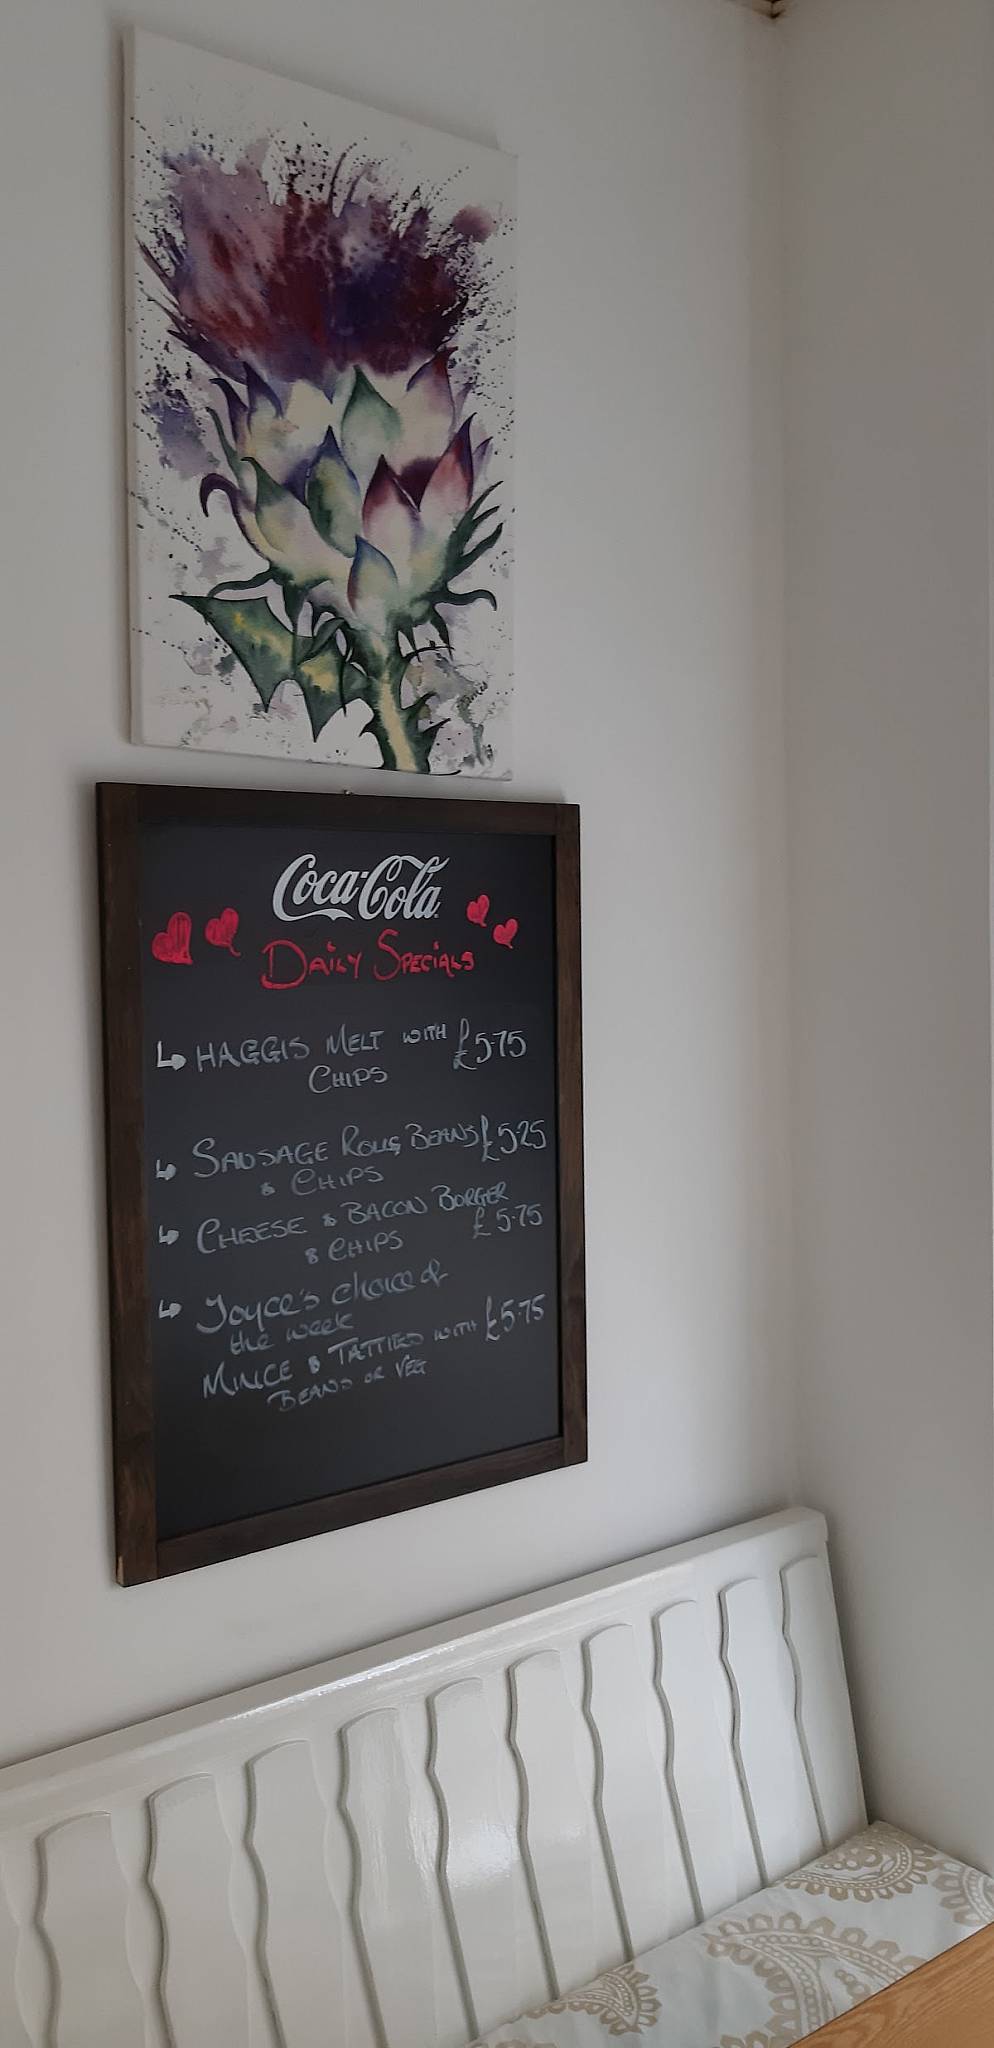 Coca-Cola
DAILY SPECIALS
HAGGIS MELT WITH £5.75
CHIPS
SAUSAGE ROLL, BEANS £5.25
& CHIPS
CHEESE & BACON BORGER
& CHIPS £5.75
Joyce's choice of
the week
MINCE & TATTIES WITH £5.75
BEANS OR VEG